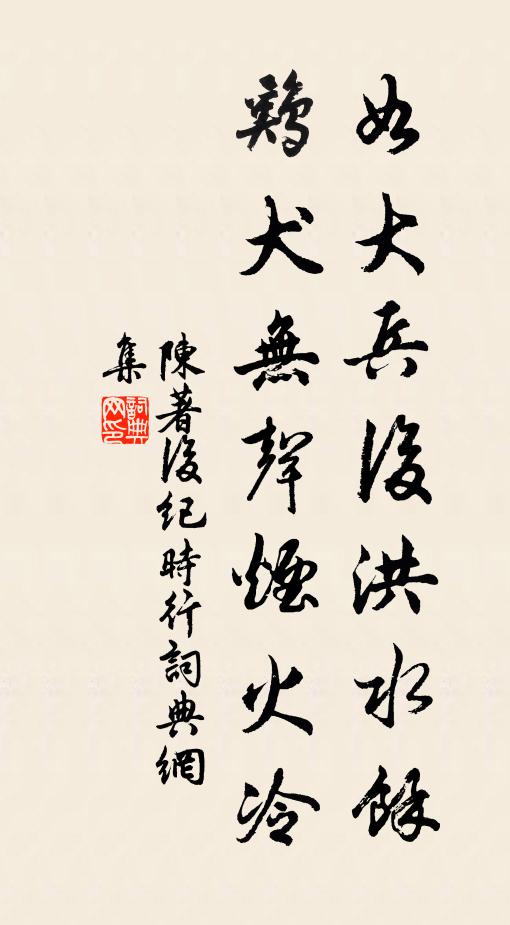 如大兵後洪水餘
鷄犬無聲煙火冷
陳著後紀時行詞典網
集
詞典
网印